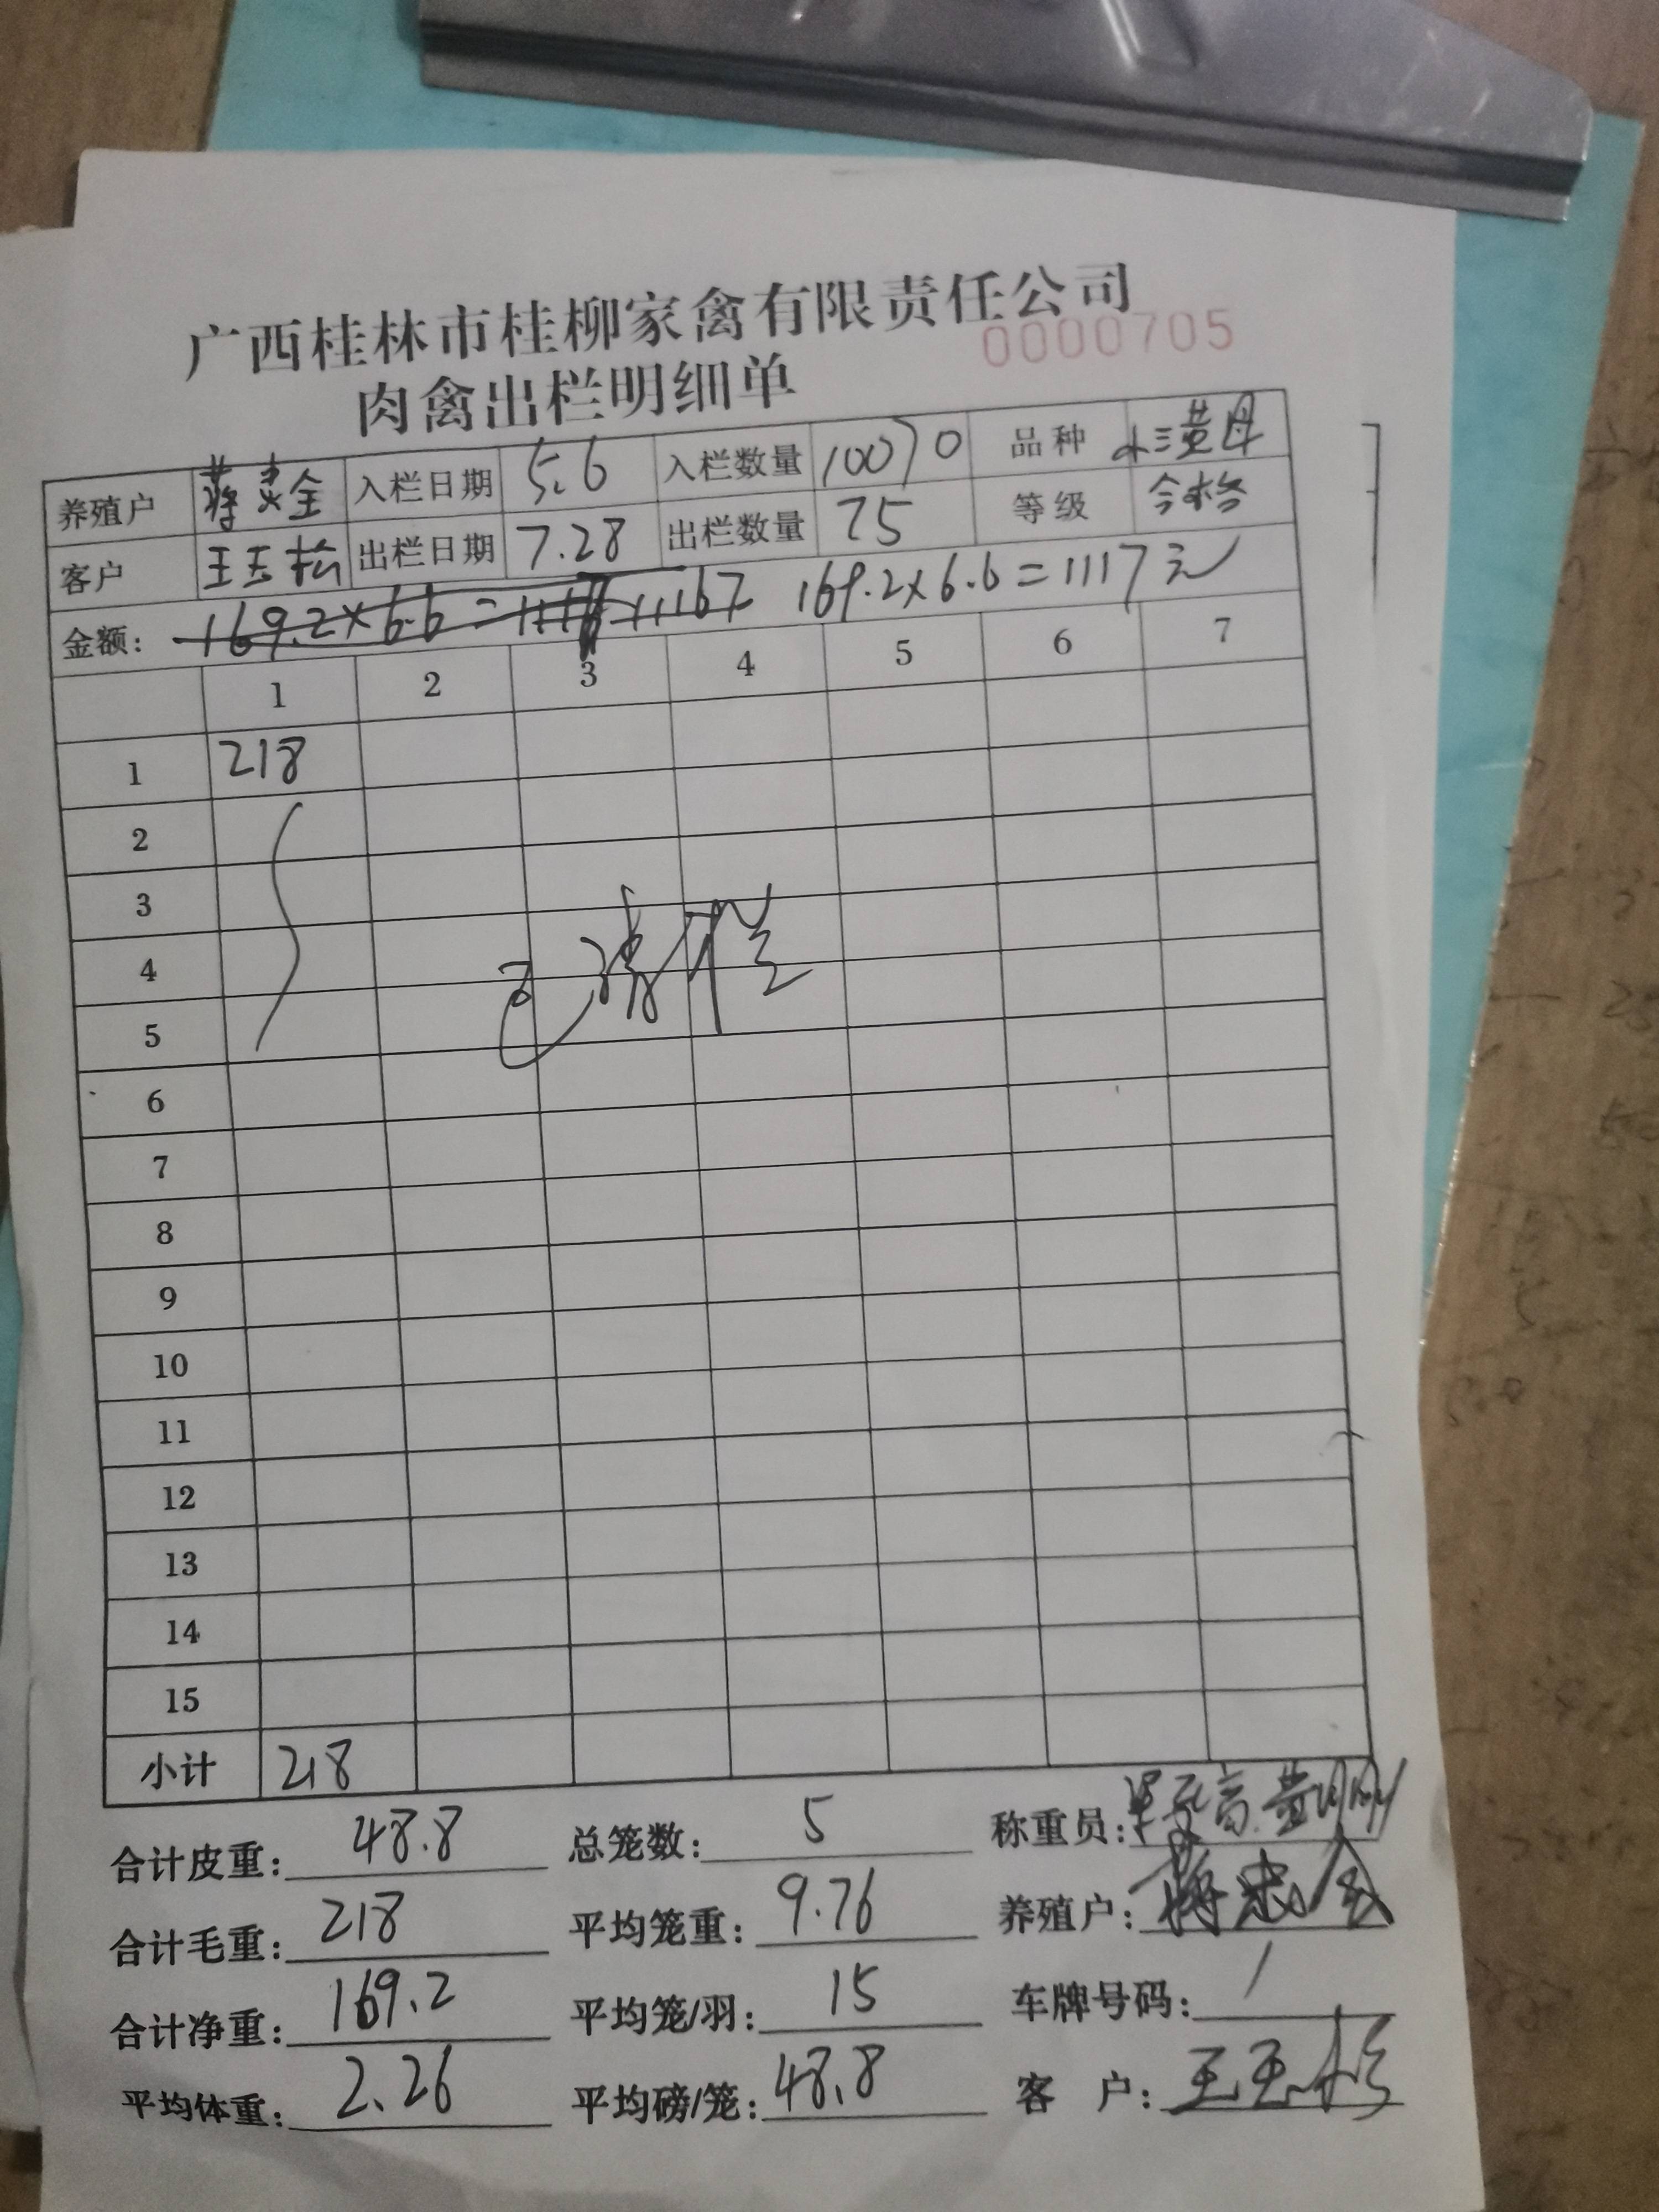 广西桂林市桂柳家禽有限责任公司
0000705
肉禽出栏明细单
养殖户 入栏日期 5.6 入栏数量 10070 品种 小三黄母
客户 王玉松 出栏日期 7.28 出栏数量 75 等级 合格
金额: 169.2×6.6=1117元
1 2 3 4 5 6 7
1 218
2
3
4
5
6
7
8
9
10
11
12
13
14
15
小计 218
合计皮重: 48.8 总笼数: 5 称重员:
合计毛重: 218 平均笼重: 9.76 养殖户:
合计净重: 169.2 平均笼/羽: 15 车牌号码: /
平均体重: 2.26 平均磅/笼: 48.8 客户: 王玉松